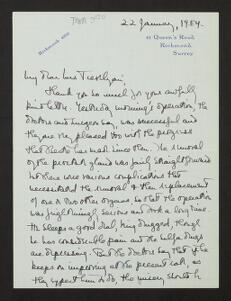 22 January, 1954.
Richmond
Queen's Road
Richmond
Surrey
My dear Mrs Trevelyan,
Thank you so much for your awfully
kind letter. Yesterday morning's operation, the
doctors and surgeon say, was successful and
they are pleased too with the progress
that has made since then. The removal
of the prostate gland was fairly straightforward
but there were various complications that
necessitated the removal & then replacement
of one or two other organs, so that the operation
was frighteningly serious and took a long time.
He sleeps a good deal, being drugged, though
he has considerable pain and the
are depressing. But the doctors say that if he
keeps on improving at the present rate, as
they expect him to do, the misery should be